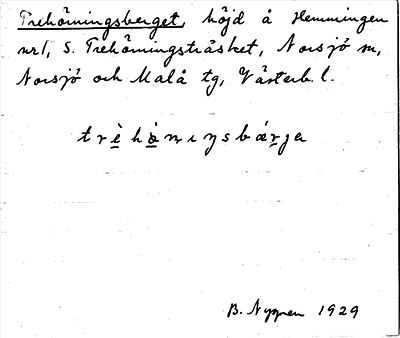 Trehörningsberget, höjd å Hemmingen
nr 1, S. Trehörningsträsket, Norsjö sn,
Norsjö och Malå tg, Västerb. l.
trèhö̱ṇıŋsbærja
B. Nygren 1929